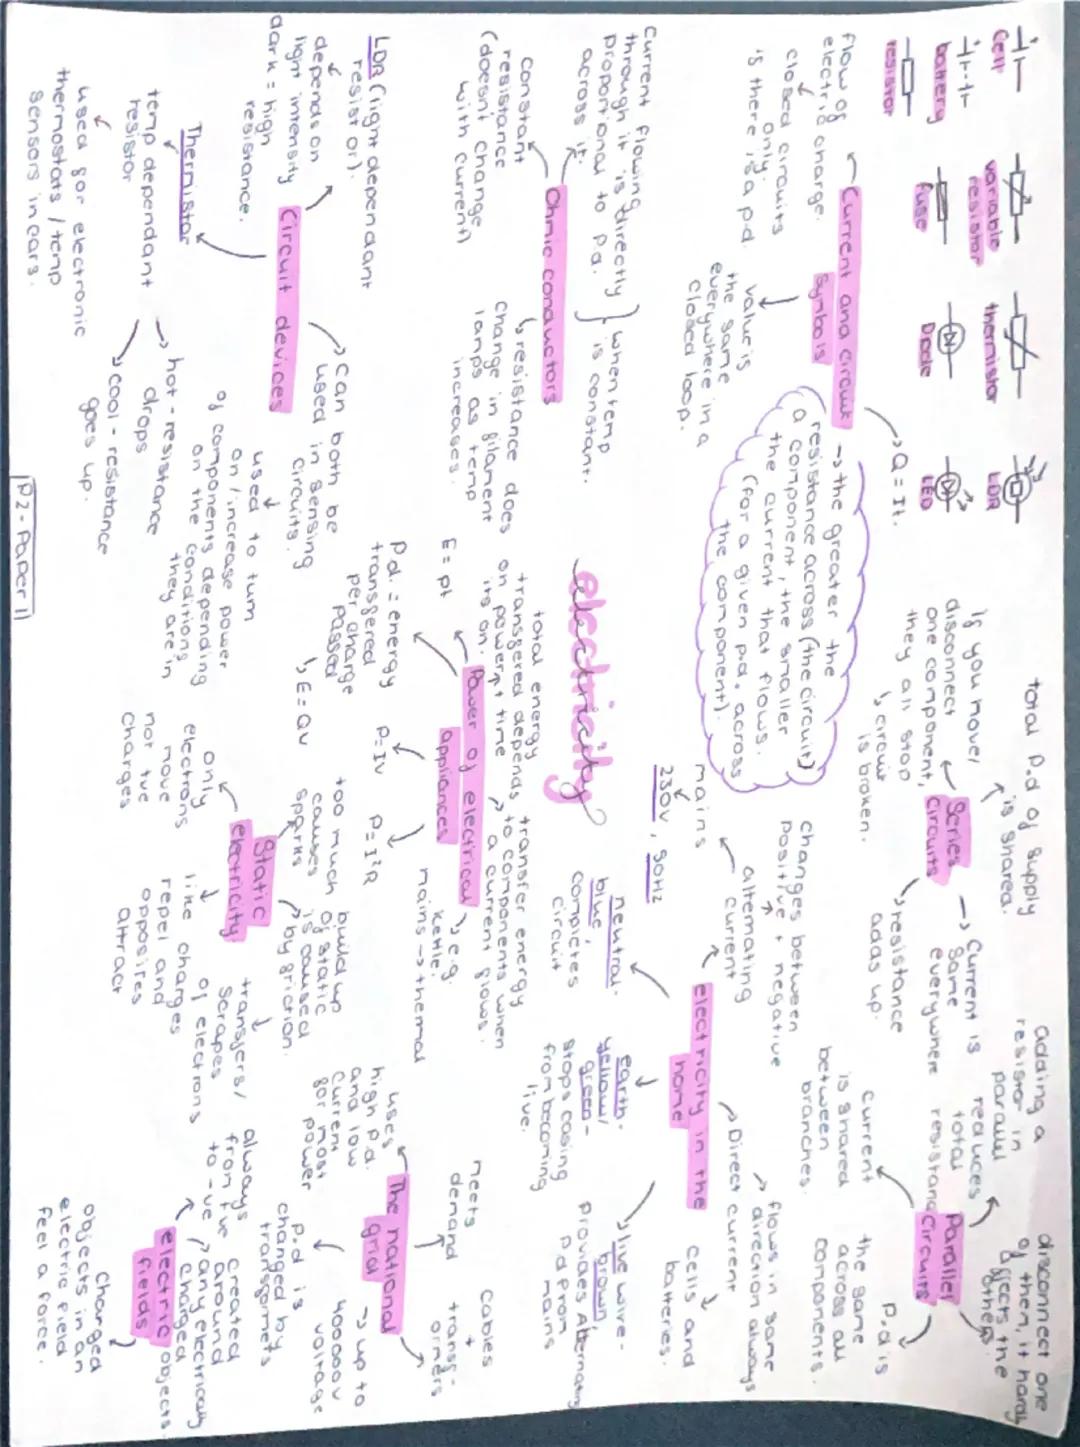 Cell
battery
resistor
variable
resistor
fuse
thermistor
Diode
LDR
LED
Current and circuit
symbols
flow of
electric charge.
closed circuits
only.
is there is a p.d.
value is
the same
everywhere in a
closed loop.
→ Q = It.
→ the greater the
resistance across (the circuit)
a component, the smaller
the current that flows.
(for a given p.d. across
the component).
Series
circuits
total p.d of supply
is shared.
if you move/
disconnect
one component,
they all stop
↳ circuit
is broken.
→ Current is
same
everywhere
resistance
adds up.
Parallel
circuits
adding a
resistor in
parallel
reduces
total
resistance
disconnect one
of them, it hardly
affects the
others.
current
is shared
between
branches.
p.d is
the same
across all
components.
Ohmic conductors
current flowing
through it is directly
proportional to P.d.
across it.
} when temp
is constant.
constant
resistance
(doesn't change
with current)
↳ resistance does
change in filament
lamps as temp
increases.
electricity
electricity in the
home
mains
230v, 50Hz
alternating
current
changes between
positive + negative
→ Direct current
→ flows in same
direction always
cells and
batteries.
neutral-
blue,
completes
circuit
earth-
yellow/
green-
stops casing
from becoming
live.
live wire-
brown
provides Alternating
p.d from
mains
Circuit devices
LDR (light dependant
resistor).
depends on
light intensity
dark = high
resistance.
Thermistor
temp dependant
resistor
used for electronic
thermostats / temp
sensors in cars.
→ hot - resistance
drops
↳ cool - resistance
goes up.
→ can both be
used in sensing
circuits.
used to turn
on / increase power
of components depending
on the conditions
they are in
Power of electrical
appliances
total energy
transfered depends
on power + time
its on.
E = pt
p.d. = energy
transfered
per charge
passed
↳ E = QV
P = IV
P = I²R
transfer energy
to components when
a current flows.
↳ e.g.
kettle:
mains → thermal
Static
electricity
too much
causes
sparks
build up
of static
is caused
by friction.
only
electrons
move
not +ve
charges
like charges
repel and
opposites
attract
transfers/
scrapes
of electrons
The national
grid
uses
high p.d.
and low
current
for most
power
meets
demand
cables
+
transf-
ormers
→ up to
400000v
voltage
p.d is
changed by
transformers
electric
fields
always
from +ve
to -ve
created
around
any electrically
charged
objects
charged
objects in an
electric field
feel a force.
P2 - Paper 1